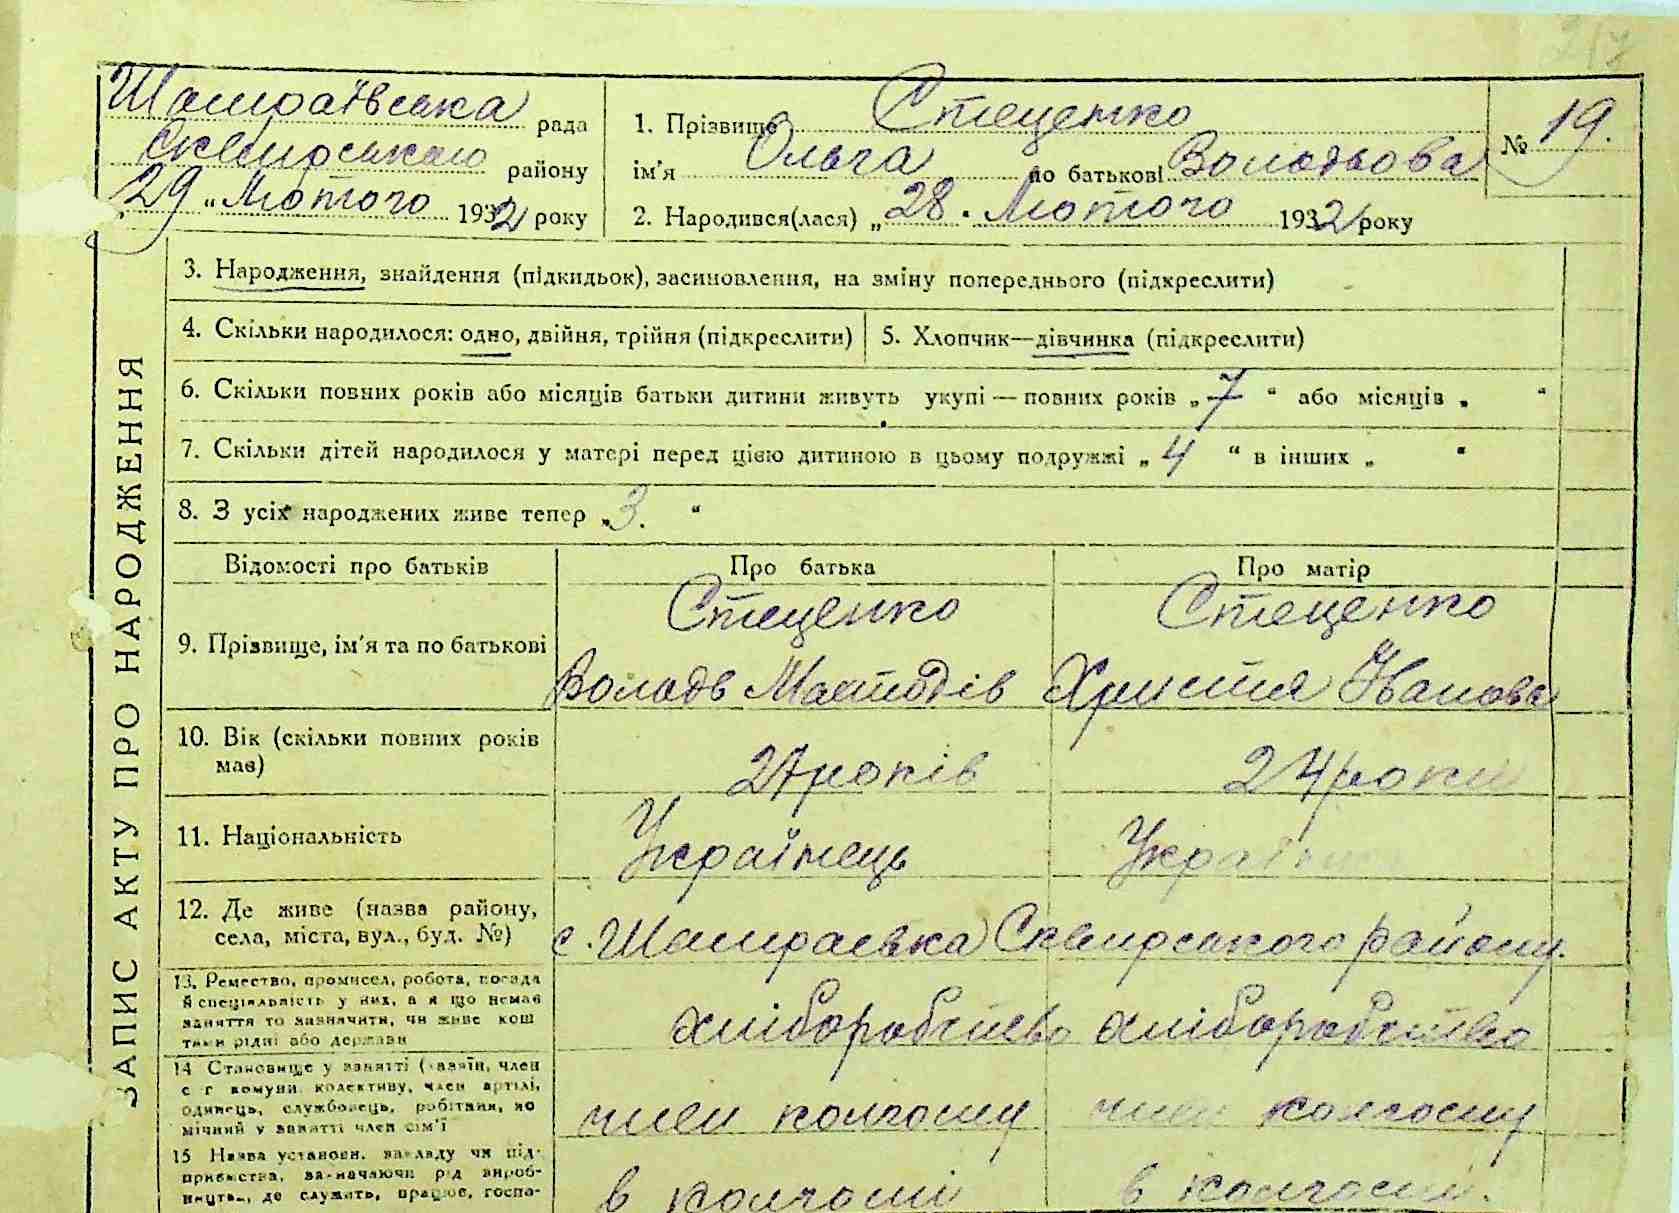 Шамраївська рада
Сквирського району
„29„ Лютого 1932 року
1. Прізвище Стеценко
ім'я Ольга по батькові Володьова
№ 19.
2. Народився(лася) „28. Лютого 1932 року
ЗАПИС АКТУ ПРО НАРОДЖЕННЯ
3. Народження, знайдення (підкидьок), засиновлення, на зміну попереднього (підкреслити)
4. Скільки народилося: одно, двійня, трійня (підкреслити) 5. Хлопчик—дівчинка (підкреслити)
6. Скільки повних років або місяців батьки дитини живуть укупі — повних років „7“ або місяців „ “
7. Скільки дітей народилося у матері перед цією дитиною в цьому подружжі „4“ в інших „ “
8. З усіх народжених живе тепер „3. “
Відомості про батьків Про батька Про матір
9. Прізвище, ім'я та по батькові Стеценко Стеценко
Володь Христя Іванова
10. Вік (скільки повних років має) 27 років 24 роки
11. Національність Українець
12. Де живе (назва району,
села, міста, вул., буд. №) с. Шамраєвка Сквирського району.
13. Ремество, промисел, робота, посада
й спеціяльність у них, а я що немає
заняття то зазначити, чи живе кош
тами рідні або держави хліборобство хліборобство
14 Становище у занятті (хазяїн, член
с г комуни колективу, член артілі,
одинець, службовець, робітник, по
мічний у занятті член сім'ї член колгоспу член колгоспу
15 Назва установи, закладу чи під-
приємства, зазначаючи рід вироб-
ництва, де служить, працює, госпо- в колгоспі в колгоспі.